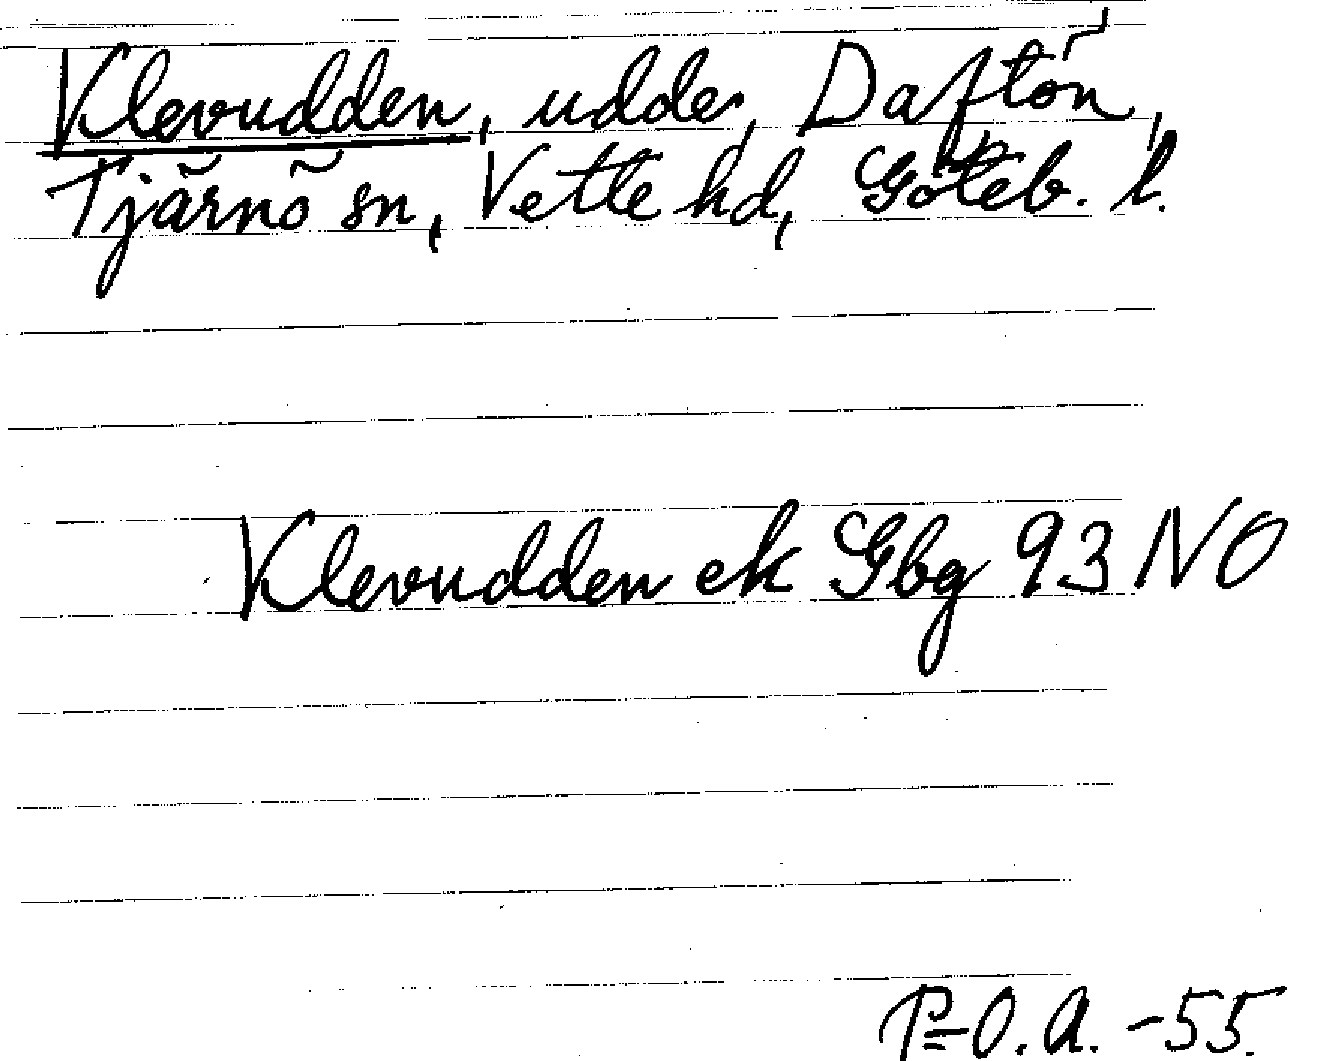 Klevudden, udde, Daftön,
Tjärnö sn, Vette hd, Göteb. l.
Klevudden ek Gbg 93 NO
P=O.A. -55.